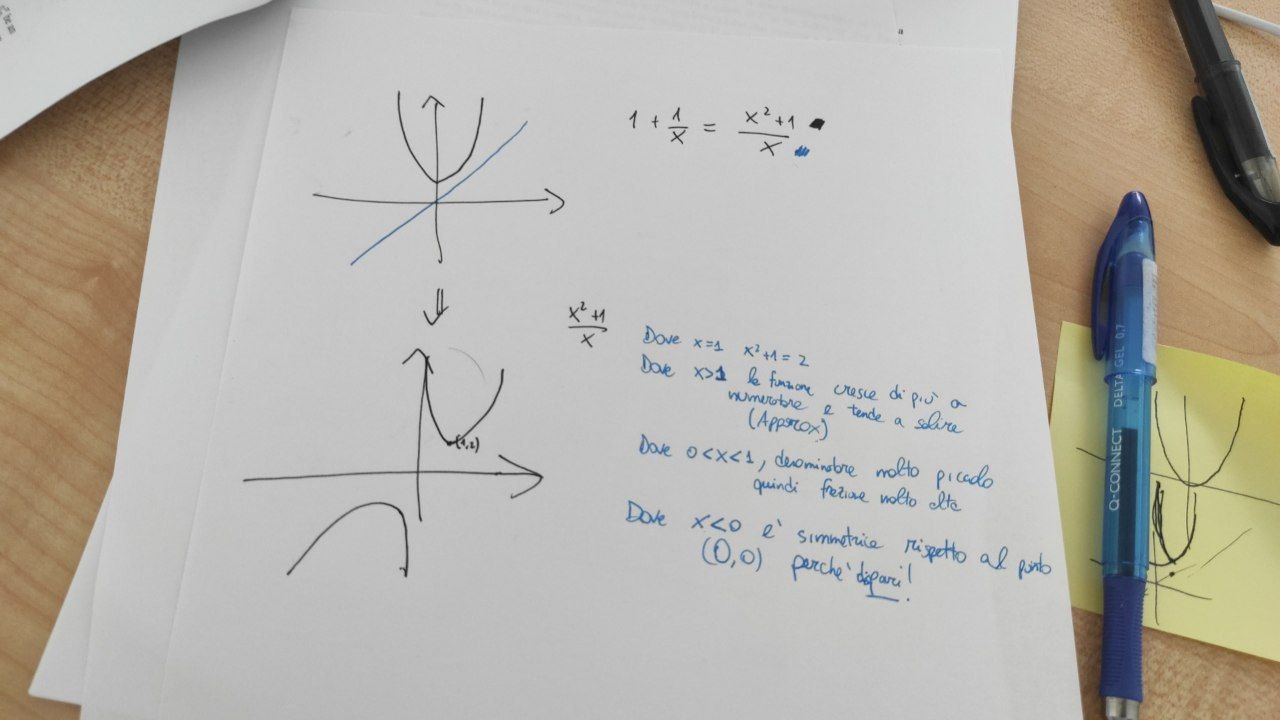 1 + 1/x = x²+1/x
x²+1/x
Dove x=1 x²+1=2
Dove x>1 la funzione cresce di più a
numeratore e tende a salire
(Approx)
Dove 0<x<1, denominatore molto piccolo
quindi frazione molto alta
Dove x<0 e' simmetrica rispetto al punto
(0,0) perche' dispari!
(1,2)
Q-CONNECT DELTA GEL 0,7